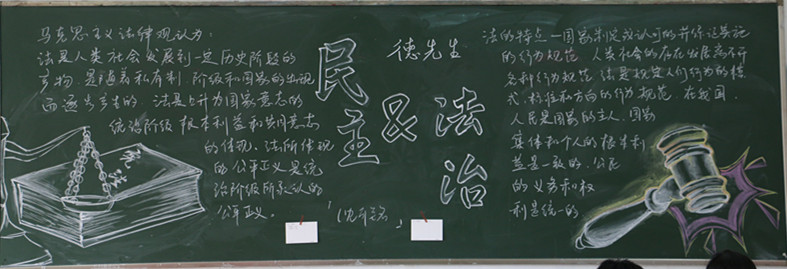 马克思主义法律观认为:
法是人类社会发展到一定历史阶段的
产物,是随着私有制、阶级和国家的出现
而逐步产生的,法是上升为国家意志的
统治阶级根本利益和共同意志
的体现。法所体现
的公平正义是统
治阶级所承认的
公平正义。
民主
&
法治
德先生
法的特点—国家制定或认可的并保证实施
的行为规范,人类社会的存在发展离不开
各种行为规范,法是规定人们行为的模
式、标准和方向的行为规范。在我国,
人民是国家的主人,国家
集体和个人的根本利
益是一致的,公民
的义务和权
利是统一的